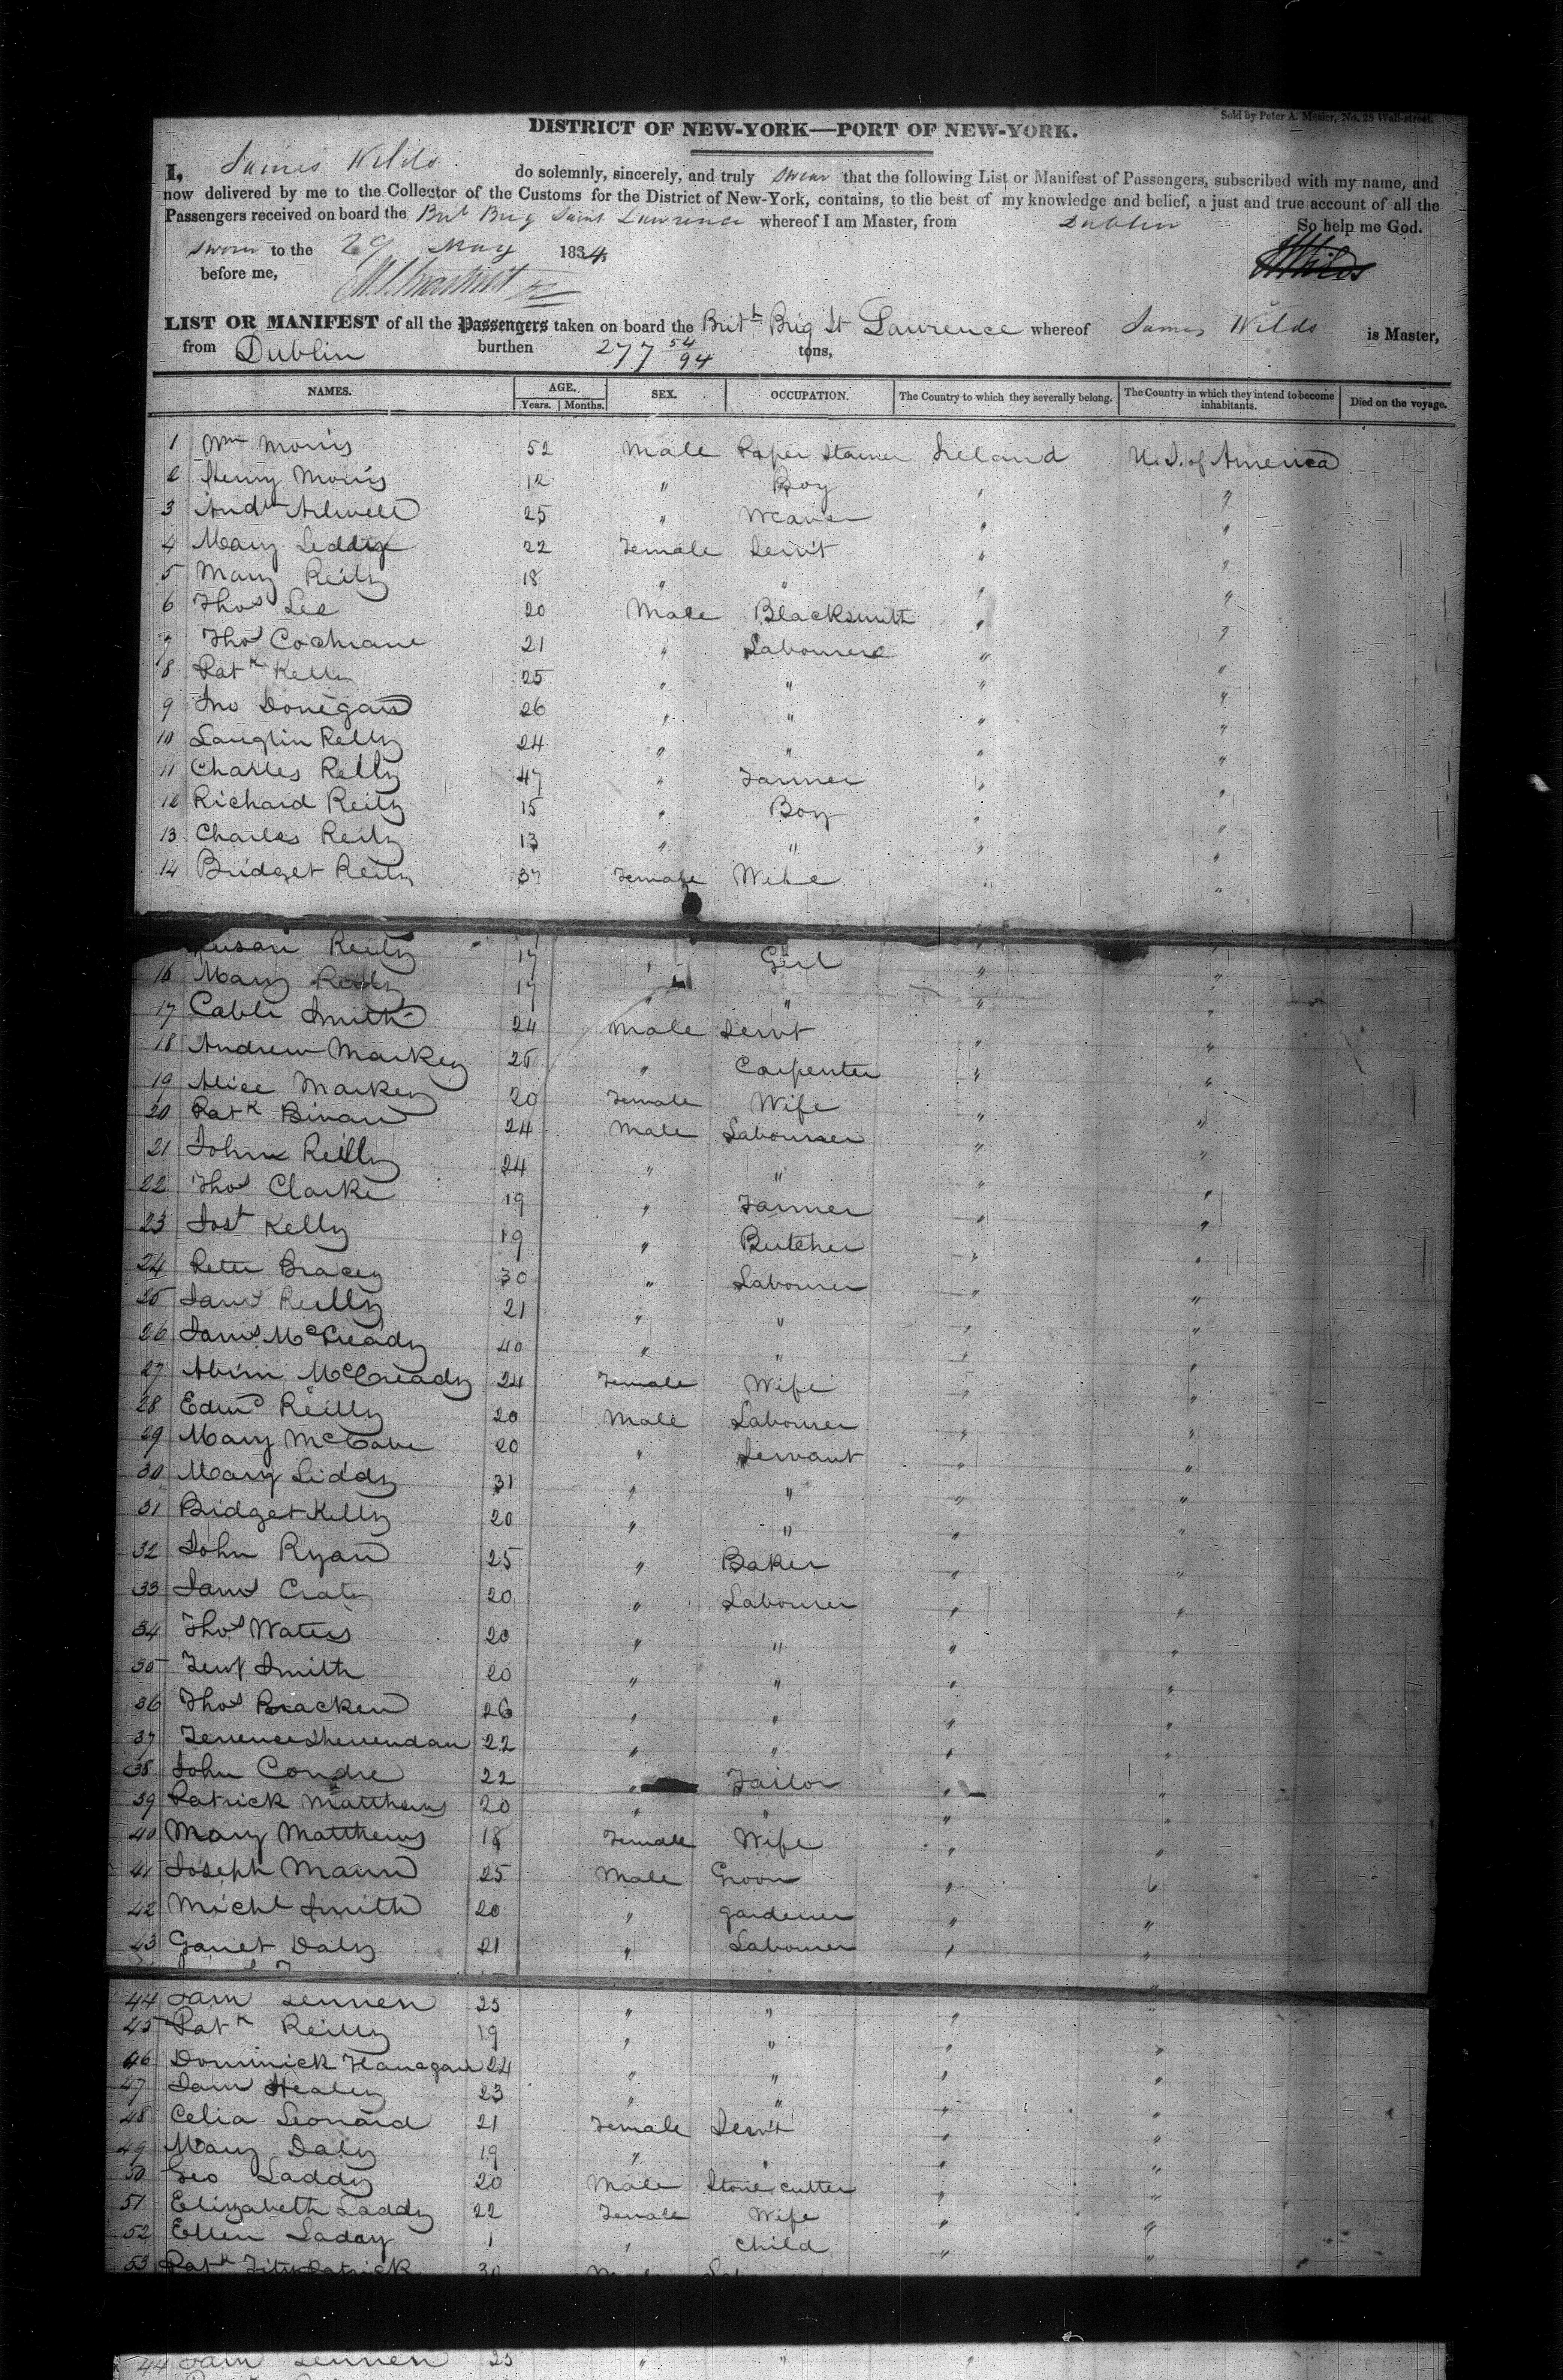 Sold by Peter A. Mesier, No. 28 Wall-street.
DISTRICT OF NEW-YORK—PORT OF NEW-YORK.
I, James Wilds do solemnly, sincerely, and truly swear that the following List or Manifest of Passengers, subscribed with my name, and
now delivered by me to the Collector of the Customs for the District of New-York, contains, to the best of my knowledge and belief, a just and true account of all the
Passengers received on board the Brit Brig Saint Lawrence whereof I am Master, from Dublin So help me God.
Sworn to the 29 May 1834
before me, JWilds
LIST OR MANIFEST of all the Passengers taken on board the Brith Brig St Lawrence whereof James Wilds is Master,
from Dublin burthen 277 54/94 tons,
NAMES. AGE. SEX. OCCUPATION. The Country to which they severally belong. The Country in which they intend to become inhabitants. Died on the voyage.
Years. Months.
1 Wm Morris 52 Male Paper Stainer Ireland U.S. of America
2 Henry Morris 12 " Boy " "
3 Andw 25 " Weaver " "
4 Mary Leddy 22 Female Servt " "
5 Mary Reily 18 " " " "
6 Thos Lee 20 Male Blacksmith " "
7 Thos Cochrane 21 " Labourer " "
8 Patk Kelly 25 " " " "
9 Jno Donegan 26 " " " "
10 Lauglin Relly 24 " " " "
11 Charles Relly 47 " Farmer " "
12 Richard Reily 15 " Boy " "
13 Charles Reily 13 " " " "
14 Bridget Reily 37 Female Wife " "
Susan Reily 17 " Girl " "
16 Mary Reily 17 " " " "
17 Smith 24 Male Servt " "
18 Andrew Markey 25 " Carpenter " "
19 Alice Markey 20 Female Wife " "
20 Patk 24 Male Labourer " "
21 John Reilly 24 " " " "
22 Thos Clarke 19 " Farmer " "
23 Kelly 19 " Butcher " "
24 Peter Bracey 30 " Labourer " "
25 Jams Reilly 21 " " " "
26 Jams McCready 40 " " " "
27 McCready 24 Female Wife " "
28 Edwd Reilly 20 Male Labourer " "
29 Mary McCabe 20 " Servant " "
30 Mary Liddy 31 " " " "
31 Bridget Kelly 20 " " " "
32 John Ryan 25 " Baker " "
33 Jams 20 " Labourer " "
34 Thos Waters 20 " " " "
35 Smith 20 " " " "
36 Thos Bracken 26 " " " "
37 Terrence Sherrendan 22 " " " "
38 John Condre 22 " Tailor " "
39 Patrick Matthews 20 " " " "
40 Mary Matthews 18 Female Wife " "
41 Joseph Mann 25 Male Groom " "
42 Michl Smith 20 " gardener " "
43 Garret Daly 21 " Labourer " "
44 Jam Lennen 25 " " " "
45 Patk Reilly 19 " " " "
46 Dominick Flanagan 24 " " " "
47 Jam Healey 23 " " " "
48 Celia Leonard 21 Female Servt " "
49 Mary Daly 19 " " " "
50 Geo Laddy 20 Male Stone cutter " "
51 Elizabeth Laddy 22 Female Wife " "
52 Ellen Laddy 1 " child " "
53 Patk Fitzpatrick 30
44 Jam Lennen 25 " "